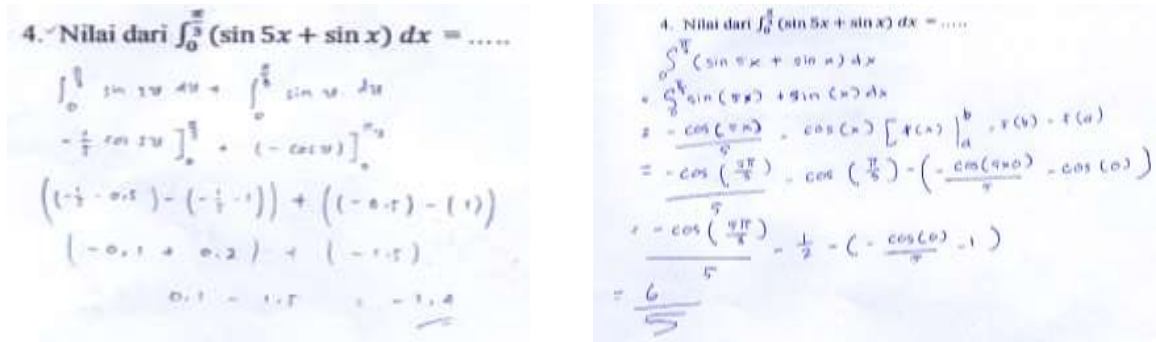 4. Nilai dari ∫₀^(π/3) (sin 5x + sin x) dx = .....
∫₀ sin 5u du + ∫ sin u du
- 1/5 cos 5u ]₀ + (- cos u) ]₀
((- 1/5 · 0.5) - (- 1/5 · 1)) + ((- 0.5) - (1))
(- 0.1 + 0.2) + (- 1.5)
0.1 - 1.5 = - 1,4
4. Nilai dari ∫₀^(π/3) (sin 5x + sin x) dx = .....
∫₀ (sin 5x + sin x) dx
= ∫₀ sin (5x) + sin (x) dx
= - cos (5x) / 5 - cos (x) [F(x)]ₐᵇ, F(b) - F(a)
= - cos ( ) / 5 - cos ( ) - (- cos ( ×0) / 5 - cos (0))
= - cos ( ) / 5 - 1/2 - (- cos (0) / 5 - 1)
= 6/5